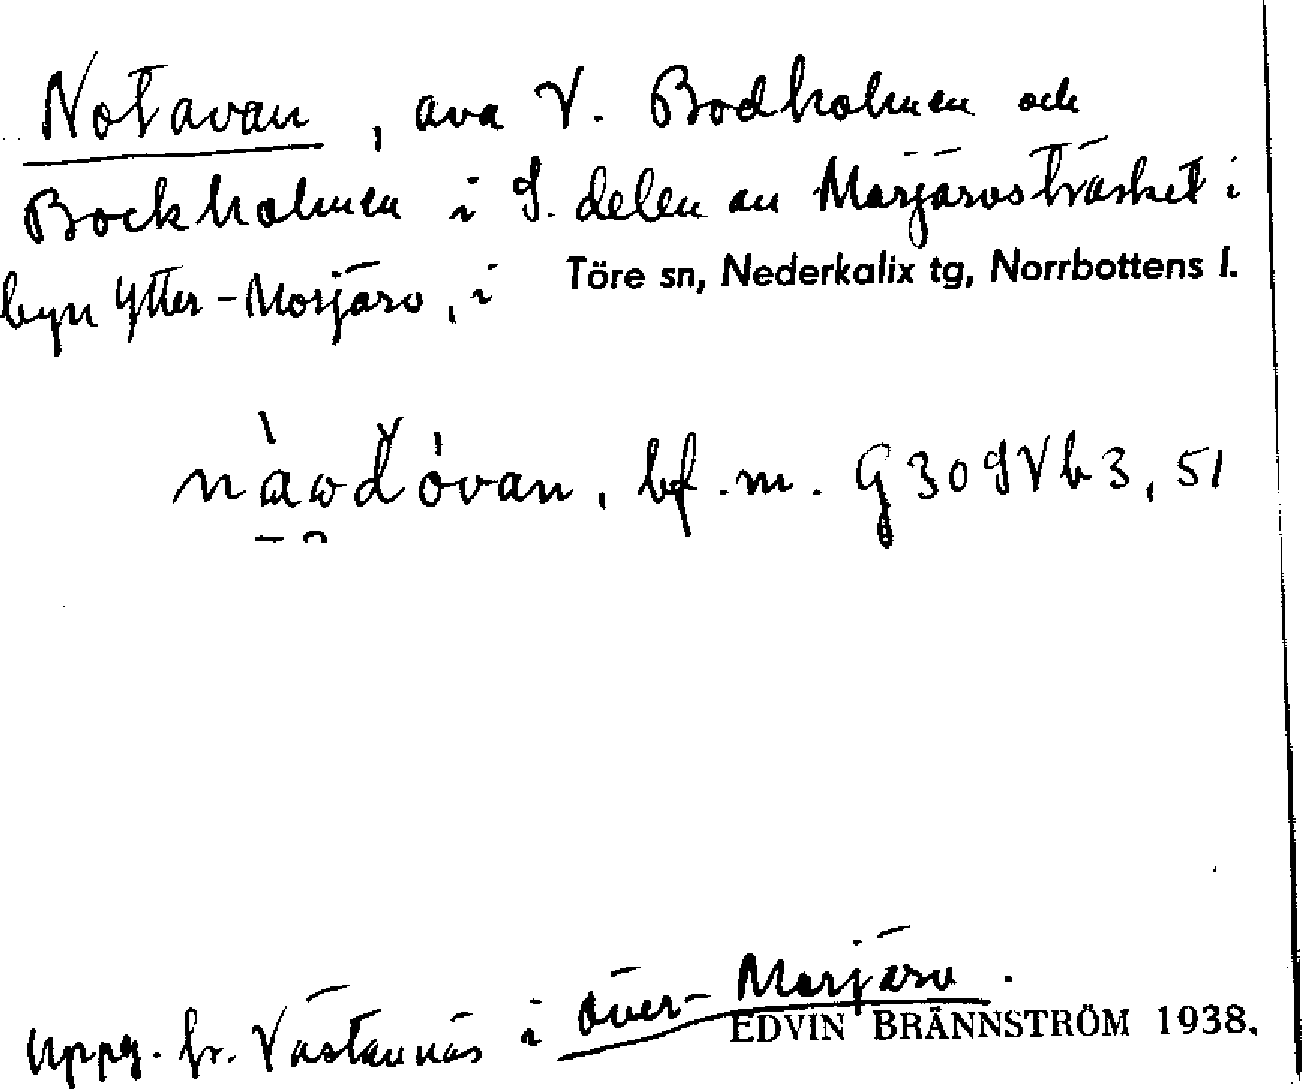 Notavan, ava V. Bodholmen och
Bockholmen i S. delen av Morjärvsträsket i
byn Ytter-Morjärv, i Töre sn, Nederkalix tg, Norrbottens l.
bf. m. G 30 SV b 3, 51
Uppg. fr. Västannäs i Över-Morjärv.
EDVIN BRÄNNSTRÖM 1938.